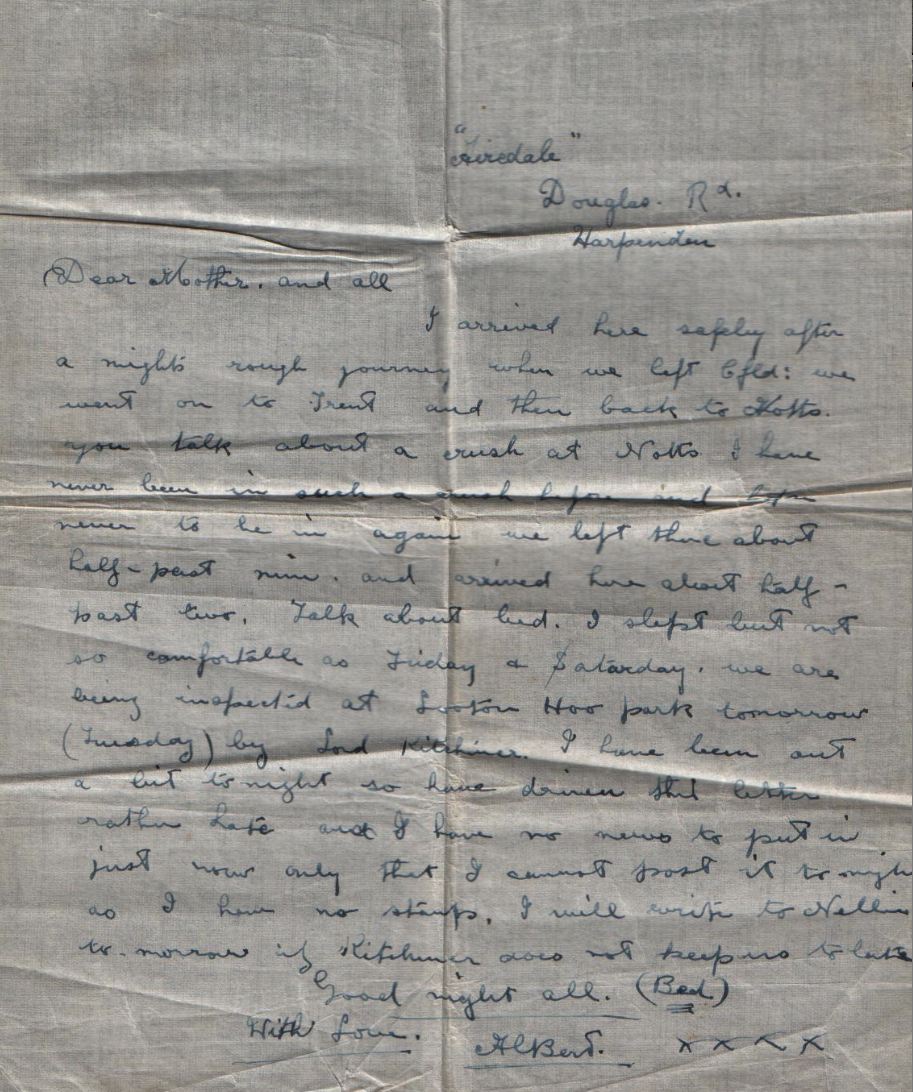 "Airedale"
Douglas. Rd.
Harpenden
Dear Mother. and all
I arrived here safely after
a night's rough journey when we left Cfld: we
went on to Trent and then back to Notts.
you talk about a crush at Notts I have
never been in such a crush before and
never to be in again we left there about
half-past nine. and arrived here about half-
past two. Talk about bed. I slept but not
so comfortable as Friday & Saturday. we are
being inspected at Looton Hoo park tomorrow
(Tuesday) by Lord Kitchiner. I have been out
a bit tonight so have driven this letter
rather late and I have no news to put in
just now only that I cannot post it to nigh
as I have no stamps. I will write to Nellie
to-morrow if Kitchiner does not keep us to late
Good night all. (Bed)
With Love. AlBert. x x x x